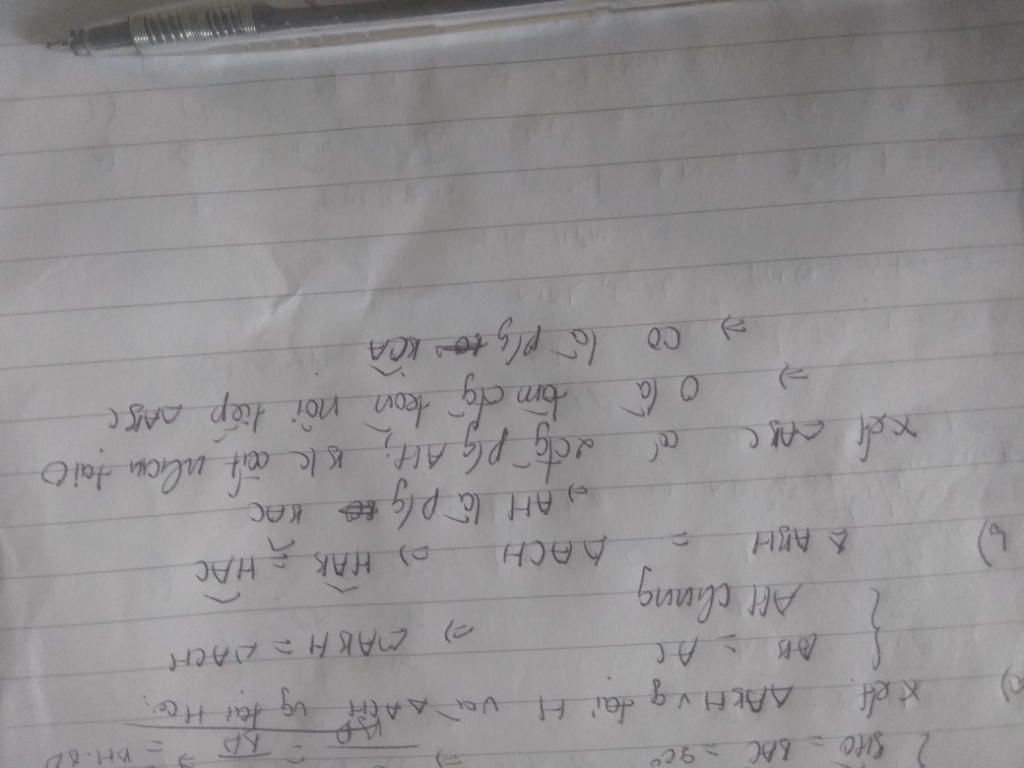 { BHO = BAC = 90° ⇒ = ⇒ = BH.BD
a) Xét ΔABH vg tại H và ΔACH vg tại H có:
{ AB = AC
AH chung ⇒ ΔABH = ΔACH
b) ΔABH = ΔACH ⇒ HAB = HAC
⇒ AH là p/g BAC
Xét ΔABC có 2 đg p/g AH, BK cắt nhau tại O
⇒ O là tâm đg tròn nội tiếp ΔABC
⇒ CO là p/g BCA